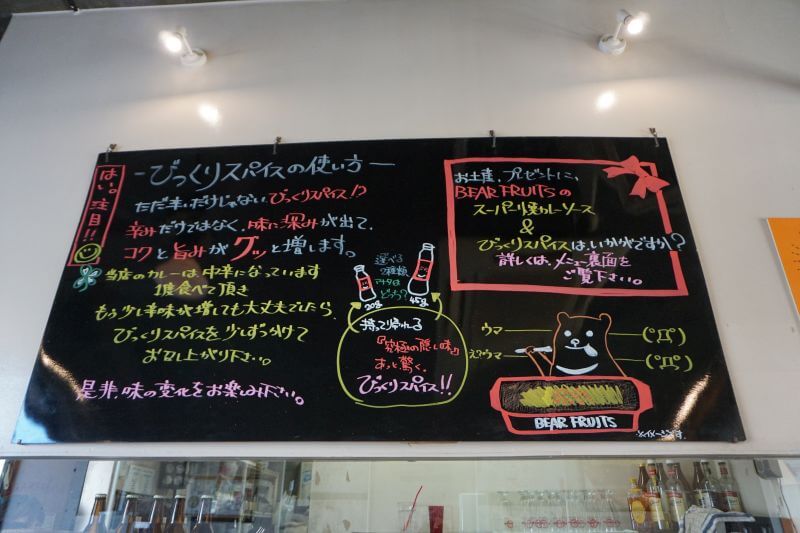 はい。注目!!
-びっくりスパイスの使い方-
ただ辛いだけじゃないびっくりスパイス!?
辛みだけではなく、味に深みが出て、
コクと旨みがグッと増します。
当店のカレーは中辛になっています
1度食べて頂き
もう少し辛味が増しても大丈夫でしたら、
びっくりスパイスを少しずつかけて
お召し上がり下さい。
是非味の変化をお楽しみ下さい。
選べる
2種類
アナタは
どっち?
20g
45g
持って帰れる
『究極の隠し味』
あっと驚く、
びっくりスパイス!!
お土産、プレゼントに、
BEAR FRUITSの
スーパー焼カレーソース
&
びっくりスパイスは、いかがですか?
詳しくは、メニュー裏面を
ご覧下さい。
ウマ
(゚Д゚)
ウマ
(゚Д゚)
BEAR FRUITS
※イメージです。